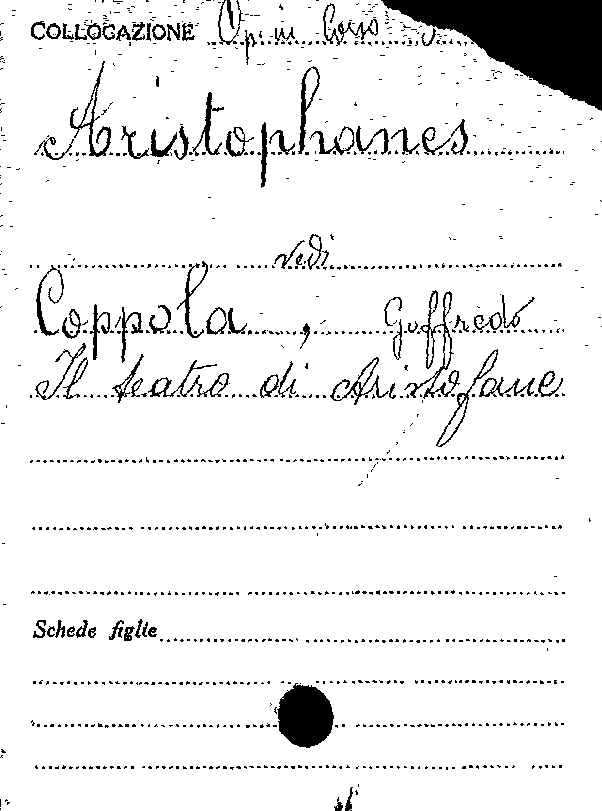 COLLOCAZIONE Op. in Corso
Aristophanes
vedi
Coppola, Goffredo
Il teatro di Aristofane
Schede figlie